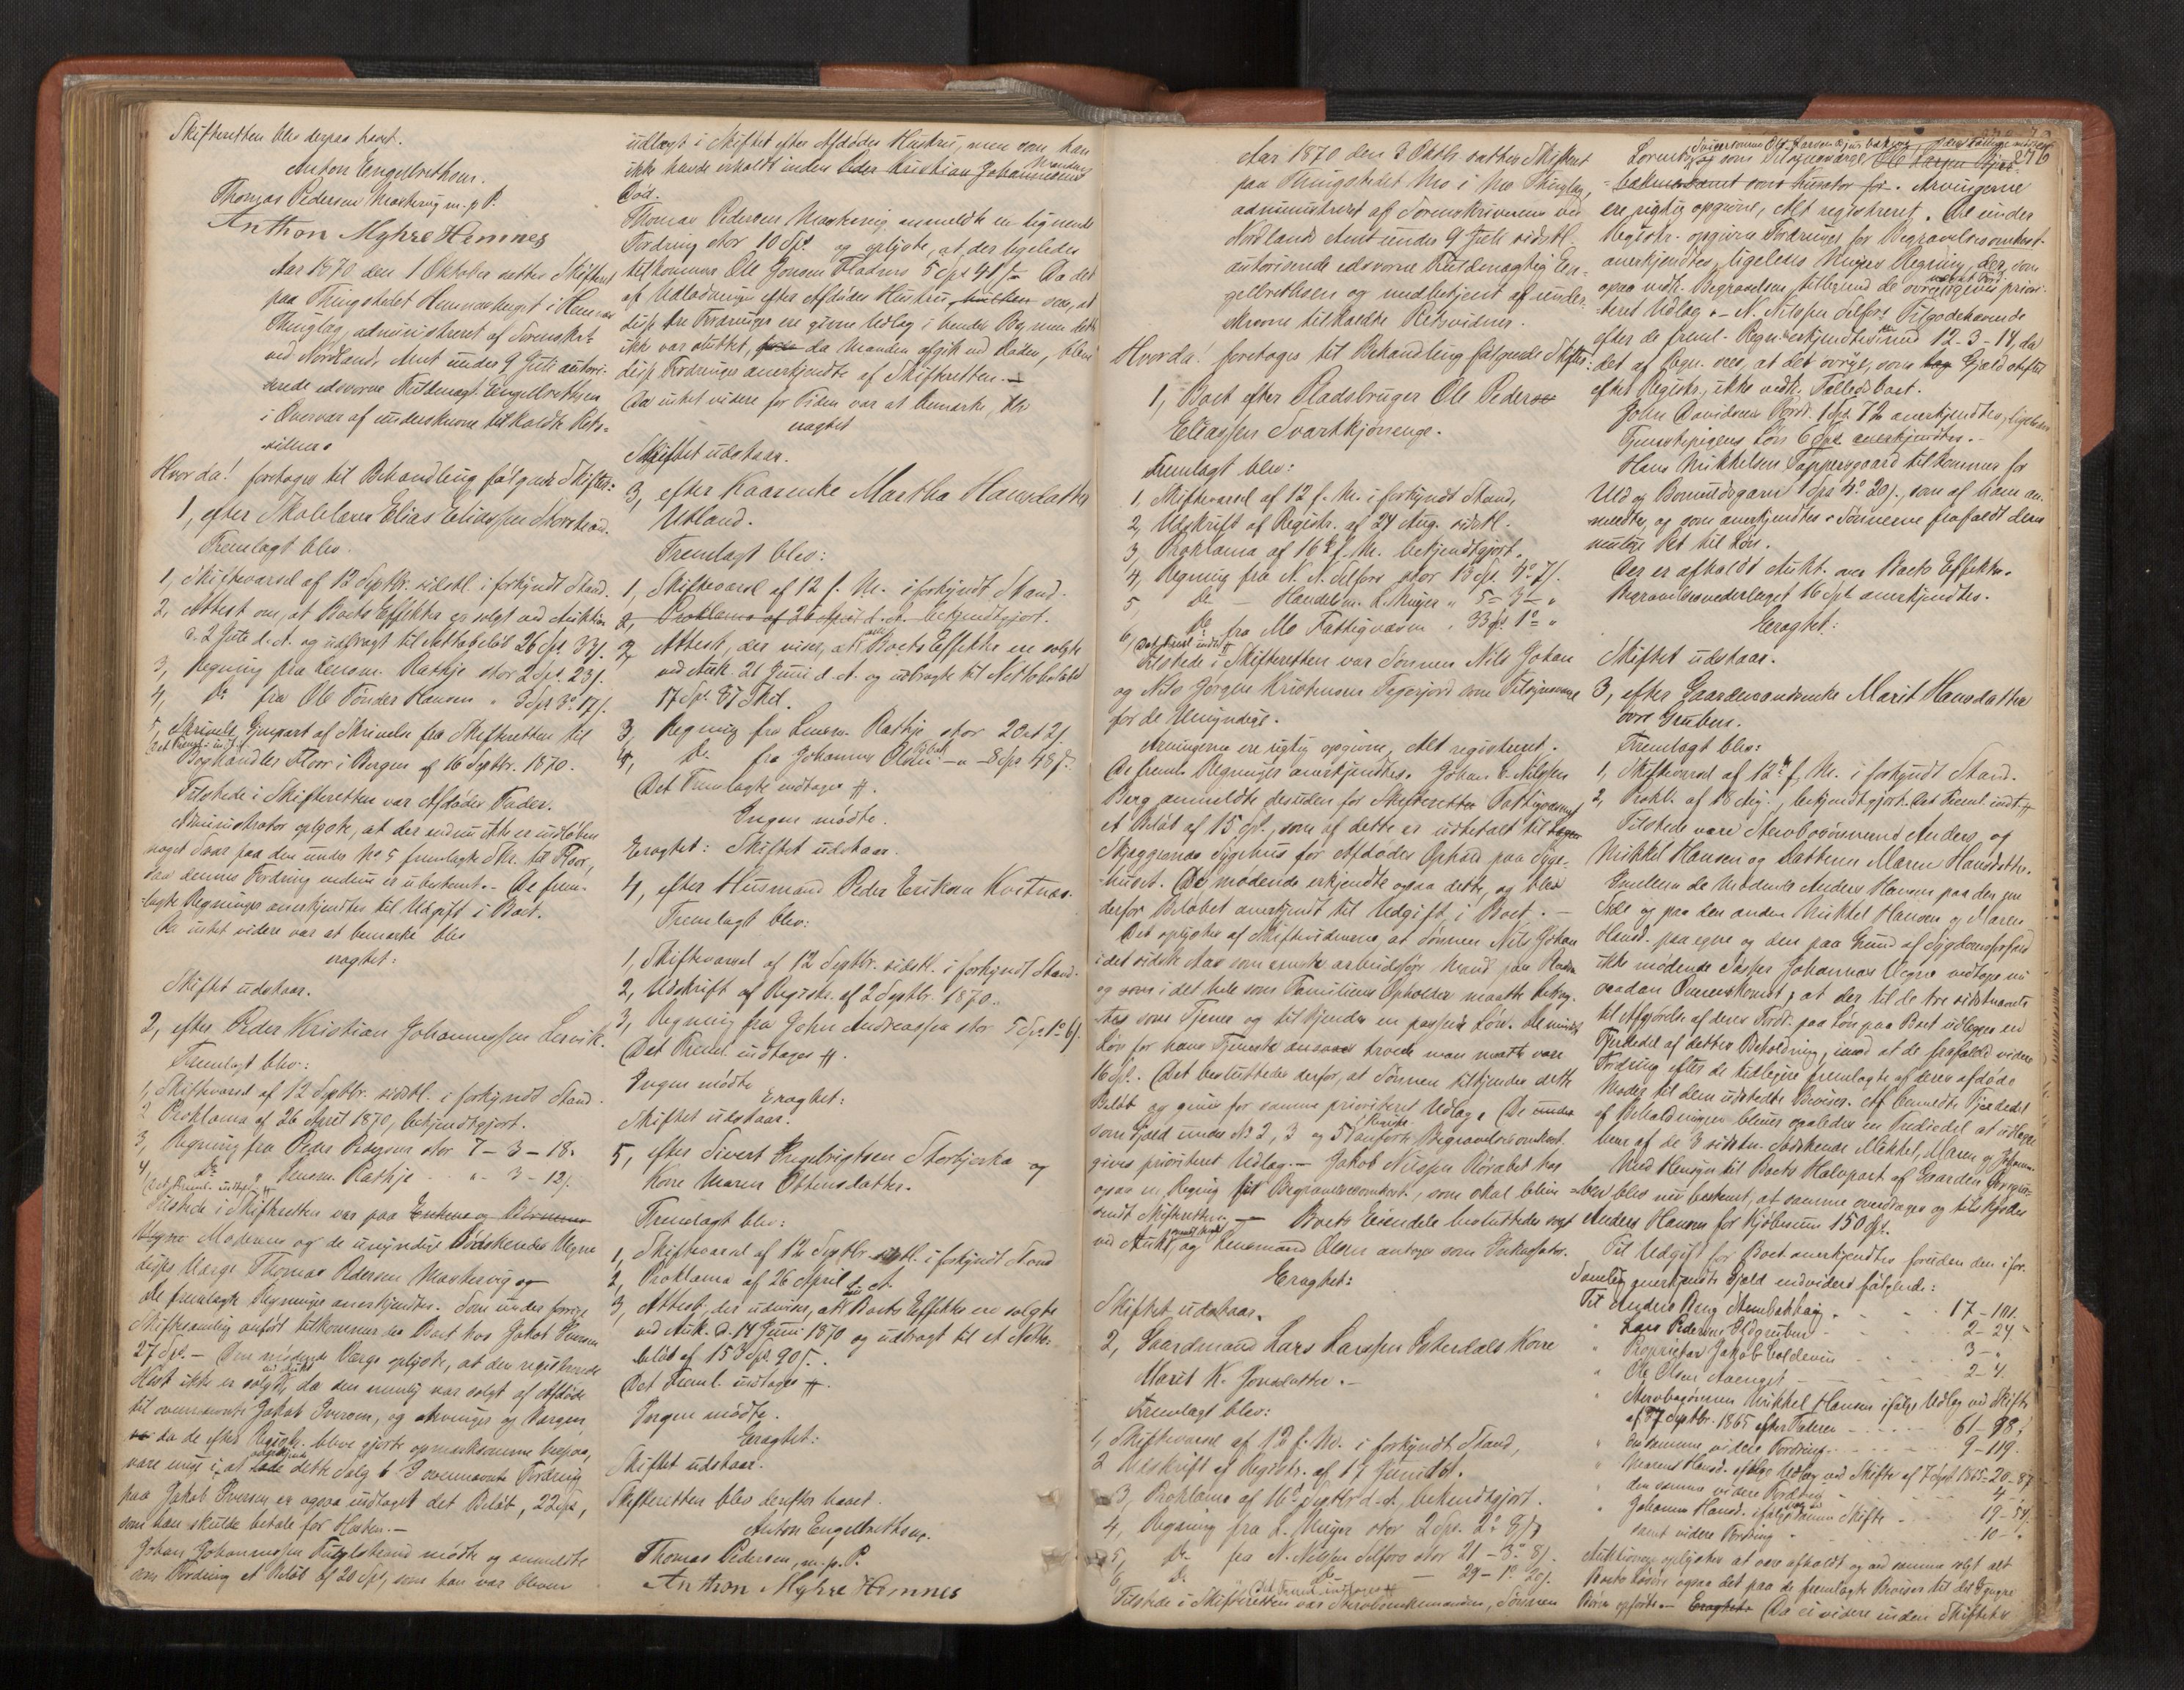 Skifteretten blev derpaa hævet.
Anton Engelbrethsen.
Thomas Pedersen Mastervig m. p. P.
Anthon Myhre Hemnes
Aar 1870 den 1 Oktober sattes Skifteret
paa Thingstedet Hemnesberget i Hemnes
Thinglag, administreret af Sorenskr.
ved Nordlands Amt under 9 Juli autori-
serede edsvorne Fuldmægt. Engelbrethsen
i Overvær af underskrevne tilkaldte Rets-
vidner.
Hvor da! foretoges til Behandling følgende Skifter:
1, efter Skolelærer Elias Eliassen Storstrand.
Fremlagt blev.
1, Skiftevarsel af 12 Septbr. sidstl. i forkyndt Stand.
2, Attest om, at Boets Effekter er solgt ved Auktion
d. 2 Juli d. A. og udbragt til Nettobeløb 26 Spd. 33 s.
3, Regning fra Lensm. Rathje stor 2 Spd. 23 s.
4, Do fra Ole Tønder Hansen " 3 Spd 3 o 17 s.
5, Gjenpart af Skrivelse fra Skifteretten til
Boghandler Floor i Bergen af 16 Septbr. 1870.
Det Freml. indt.
Tilstede i Skifteretten var Afdødes Fader.
Administrator oplyste, at der endnu ikke er indløben
noget Svar paa den under No 5 fremlagte Skr. til Floor,
saa dennes Fordring endnu er ubestemt. - De frem-
lagte Regninger anerkjendtes til Udgift i Boet.
Da intet videre var at bemærke blev
eragtet:
Skiftet udstaar.
2, efter Peder Kristian Johannessen Lervik.
Fremlagt blev:
1, Skiftevarsel af 12 Septbr. sidstl. i forkyndt Stand.
2 Proklama af 26 April 1870, bekjendtgjort.
3, Regning fra Peder Pedersen stor 7 - 3 - 18.
4, Do " Lensm. Rathje " - 3 - 12 s.
Det Freml. indtages #.
Tilstede i Skifteretten var paa Enkens og Børnenes
Vegne Moderen og de umyndige Sødskendes Vegne
disses Værge Thomas Pedersen Mastervig og
De fremlagte Regninger anerkjendtes. Som under forrige
Skiftesamling anført tilkommer Boet hos Jakob Iversen
27 Spd. - Den mødende Værge oplyste, at den registrerede
Hest ikke er solgt ved Aukt. da den nemlig var solgt af Afdøde
til ovennævnte Jakob Iversen, og Arvinger og Værgen
da de efter Registr. bleve gjorte opmærksomme herpaa,
vare enige i, at dette Salg Foruden ovennævnte Fordring
paa Jakob Iversen er ogsaa indtaget det Beløb, 22 Spd,
som han skulde betale for Hesten. -
Johan Johannessen Fuglstrand mødte og anmeldte
som Fordring et Beløb af 20 Spd, som han var bleven
udlagt i Skiftet efter Afdødes Hustru, men som han
ikke havde erholdt inden Peder Kristian Johannessens Mandens
Død.
Thomas Pedersen Mastervig anmeldte en lignende
Fordring stor 10 Spd. og oplyste, at der ligeledes
tilkommer Ole Jonsen Fladmo 5 Spd 41 s. - Da det
af Udlodningen efter Afdødes Hustru sees, at
disse tre Fordringer ere givne Udlag i hendes Bo, men dette
ikke var sluttet, da Manden afgik ved Døden, bleve
disse Fordringer anerkjendte af Skifteretten. -
Da intet videre for Tiden var at bemærke, blev
eragtet
Skiftet udstaar.
3, efter Kaarenke Martha Hansdatter
Utland.
Fremlagt blev:
1, Skiftevarsel af 12 f. M. i forkyndt Stand.
2, Proklama af 26 April d. A. bekjendtgjort.
2, Attest, der viser, at Boets Effekter ere solgte
ved Auk. 21 Juni d. A. og udbragte til Nettobeløb
17 Spd. 87 Skil.
3, Regning fra Lensm. Rathje stor 2 Ort 2 s.
4, Do fra Johannes Olsen - " - 8 Spd 48 s.
Det Fremlagte indtages #.
Ingen mødte.
Eragtet: Skiftet udstaar.
4, efter Husmand Peder Eriksen Kvitnes.
Fremlagt blev:
1, Skiftevarsel af 12 Septbr. sidstl. i forkyndt Stand.
2, Udskrift af Registr. af 2 Septbr. 1870.
3, Regning fra John Andreassen stor 5 Spd. 1 o 6 s.
Det Freml. indtages #.
Ingen mødte
Eragtet:
Skiftet udstaar.
5, efter Sivert Ingebrigtsen Storbjerka og
Kone Maren Ottersdatter.
Fremlagt blev:
1, Skiftevarsel af 12 Septbr. sidstl. i forkyndt Stand
2, Proklama af 26 April d. A.
3, Attest, der udviser, at Boets Effekter ere solgte
ved Auk. d. 14 Juni 1870 og udbragt til et Netto-
beløb af 153 Spd. 90 s.
Det Freml. indtages #.
Ingen mødte.
Eragtet:
Skiftet udstaar.
Skifteretten blev derefter hævet.
Anton Engelbrethsen.
Thomas Pedersen, m. p. P.
Anthon Myhre Hemnes
276
Aar 1870 den 3 Oktbr. sattes Skifteret
paa Thingstedet Mo i Mo Thinglag,
administreret af Sorenskriverens ved
Nordlands Amt under 9 Juli sidstl.
autoriserede edsvorne Fuldmægtig En-
gelbrethsen og medbetjent af under-
skrevne tilkaldte Retsvidner.
Hvor da foretoges til Behandling følgende Skifter:
1, Boet efter Pladsbruger Ole Peder
Eliassen Svartkjønenge.
Fremlagt blev:
1, Skiftevarsel af 12 f. M. i forkyndt Stand,
2, Udskrift af Registr. af 24 Aug. sidstl.
3, Proklama af 16 f. M. bekjendtgjort.
4, Regning fra N. N. Selfors stor 15 Spd. 4 o 7 s.
5, Do - Handelsm. L. Meyer " 5 - 3 - "
6, Do fra Mo Fattigvæsen " 33 Spd. 1 o "
Det Freml. indt. #
Tilstede i Skifteretten var Sønnen Nils Johan
og Nils Jørgen Kristensen som Tilsynsværge
for de Umyndige.
Arvingerne ere rigtig opgivne, Alt registreret.
De freml. Regninger anerkjendtes. Johan Nilssen
Berg anmeldte desuden for Fattigvæsenet
et Beløb af 15 Spd., som af dette er udbetalt til
Sygehus for Afdødes Ophold paa Syge-
huset. De mødende erkjendte ogsaa dette, og blev
derfor Beløbet anerkjendt til Udgift i Boet. -
Det oplystes af Skiftevidnerne, at Sønnen Nils Johan
i det sidste Aar som eneste arbeidsfør Mand paa
og som i det hele som Familiens Opholder maatte betrag-
tes som Tjener og tilkjendes en passende Løn. De mindste
Løn for hans Tjeneste troede man maatte være
16 Spd. Det besluttedes derfor, at Sønnen tilkjendes dette
Beløb og gives for samme prioriteret Udlæg. De
som Gjæld under No 2, 3 og 5 i Registr. anførte Begravelsesomkost.
gives prioriteret Udlæg. - Jakob Nilssen Rørabet har
ogsaa en Regning til Begravelsesomkost., som skal blive
sendt Skifteretten. - Boets Eiendele besluttedes solgt
ved Aukt. og Lensmand Olsen antages som Inkassator.
Eragtet:
Skiftet udstaar.
2, Gaardmand Lars Larssen Østerdals Kone
Marit K. Jonsdatter. -
Fremlagt blev:
1, Skiftevarsel af 12 f. M. i forkyndt Stand,
2 Udskrift af Registr. af 17 Juni
3, Proklama af 16 Septbr d. A. bekendtgjort.
4, Regning fra L. Meyer stor 2 Spd. 2 o 8 s.
5, Do fra N. Nilssen Selfors stor 21 - 3 o 8 s.
6, Do Do - 29 - 1 o 20 s.
Det Freml. indtages #
Tilstede i Skifteretten var Stervboenkemanden, Sønnen
Lorents og som Tilsynsværge Ole Larsen
samt som Kurator for. Arvingerne
ere rigtig opgivne, Alt registreret. De under
Registr. opgivne Fordringer for Begravelsesomkost.
anerkjendtes, ligeledes Meyers Regning, der, som
ogsaa vedk. Begravelsen, tilligemed de gives priori-
teret Udlæg. - N. Nilssen Selfors Tilgodehavende
efter de freml. Regn. erkjendtes kun med 12 - 3 - 14, da
det af Regn. sees, at det øvrige, som Gjæld stiftet
efter Registr., ikke vedk. Fællesboet.
John Davidsens Fordr. 1 Spd. 72 anerkjendtes, ligeledes
Tjenestepigens Løn 6 Spd. anerkjendtes. -
Hans Mikkelsen Tappersgaard tilkommer for
Uld og Bomuldsgarn 1 Spd. 4 o 20 s., som af ham an-
meldtes, og som anerkjendtes. Sønnerne frafaldt
Ret til Løn.
Der er afholdt Aukt. over Boets Effekter.
Begravelsesvederlaget 16 Spd. anerkjendtes.
Eragtet:
Skiftet udstaar.
3, efter Gaardmandsenke Marit Hansdatter
øvre Gruben.
Fremlagt blev:
1, Skiftevarsel af 12 f. M. i forkyndt Stand.
2, Prokl. af 18 , bekjendtgjort. Det Freml. indt. #
Tilstede vare Stervbosønnerne Anders og
Mikkel Hansen og Datteren Maren Hansdatter.
Imellem de Mødende Anders Hansen paa den ene
Side og paa den anden Mikkel Hansen og Maren
Hansd. paa egne og den paa Grund af Sygdomsforfald
ikke mødende Søster Johannas Vegne vedtoges nu
saadan Overenskomst, at der til de tre sidstnævnte
til Afgjørelse af deres Fordr. paa Løn paa Boet udlægges en
Fjerdedel af dettes Beholdning, imod at de frafalde videre
Fordring efter de tidligere fremlagte af deres afdøde
Moder til dem udstedte Beviser. Af bemeldte Fjerdedel
af Beholdningen bliver saaledes en Trediedel at udlægge
hver af de 3 sidstn. Sødskende Mikkel, Maren og Johanna.
Med Hensyn til Boets Halvpart af Gaarden
ben blev nu bestemt, at samme overdrages og tilskjødes
Anders Hansen for Kjøbesum 150 Spd.
Til Udgift for Boet anerkjendtes foruden den i for.
Samling anerkjendte Gjæld endvidere følgende:
Til Andrea Berg Stenbekhaug - 17 - 101.
" Lars Pedersen Oldgruben - 2 - 24
" Proprietær Jakob Coldevin - 3 - "
" Ole Olsen - 2 - 4
" Stervbosønnen Mikkel Hansen ifølge Udlæg ved Skifte
af 7 Septbr. 1865 efter Faderen - 61 - 98.
" den samme videre Fordring - 9 - 119.
" Maren Hansd. ifølge Udlæg ved Skifte af 7 Sept. 1865 - 20 - 87
" den samme videre Fordring - 4 -
" Johanna Hansd. ifølge samme Skifte - 19 - 54.
samt videre Fordring - 10 - "
Auktionen oplystes at være afholdt og ved samme solgt alt
Boets Løsøre ogsaa det paa de fremlagte Beviser til det
Børn opførte. - Eragtet: Da ei videre inden Skiftet